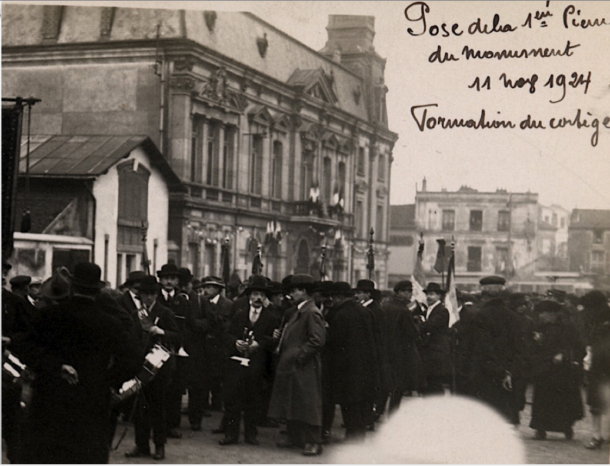 Pose de la 1ère Pierr
du Monument
11 Nov 1924
Formation du cortège